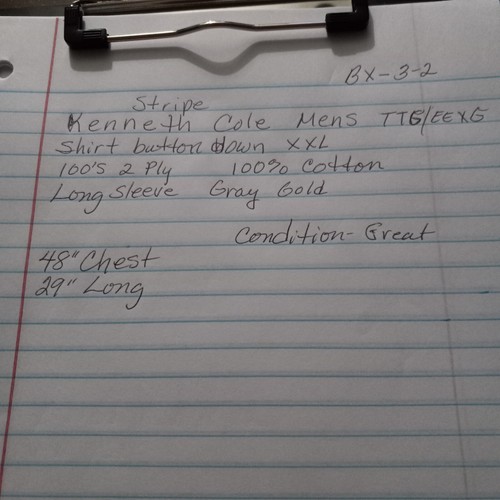 BX-3-2
Stripe
Kenneth Cole Mens TTG/EEXG
Shirt button down XXL
100's 2 Ply 100% Cotton
Long Sleeve Gray Gold
Condition- Great
48" Chest
29" Long